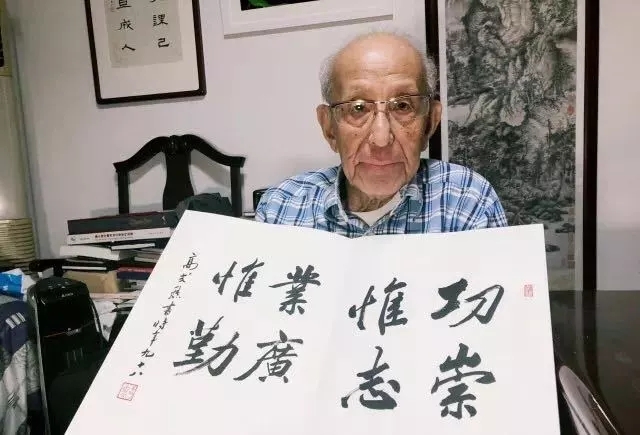 功崇
惟志
業廣
惟勤
高文彬書時年九十八
課己
成人